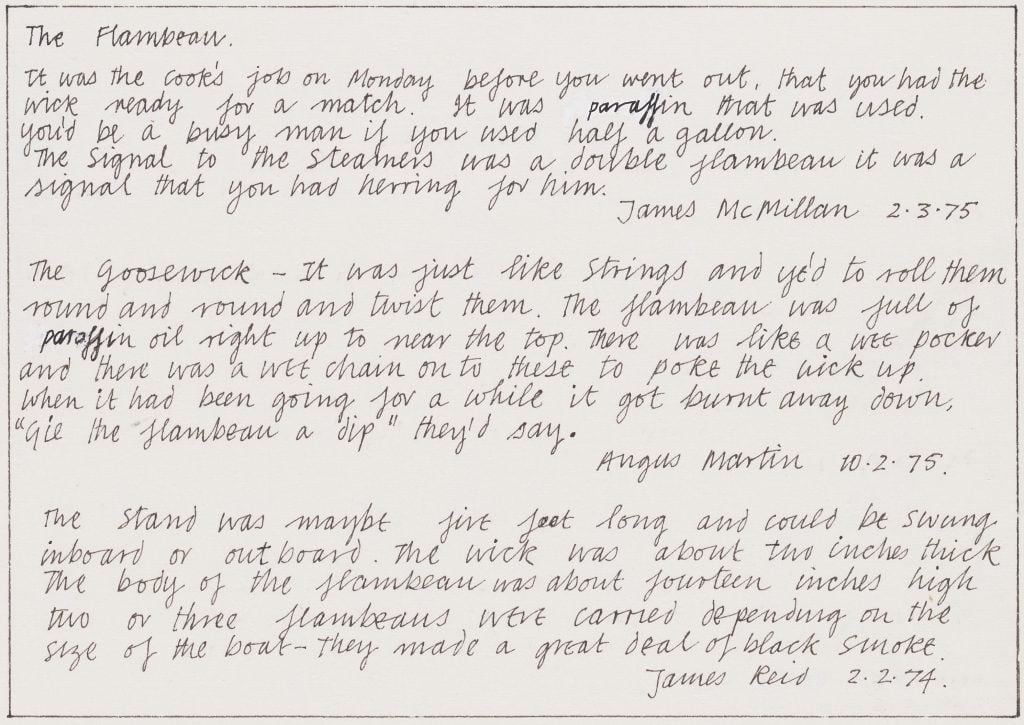 The Flambeau.
It was the cook's job on Monday before you went out, that you had the
wick ready for a match. It was paraffin that was used.
you'd be a busy man if you used half a gallon.
The Signal to the Steamers was a double flambeau it was a
signal that you had herring for him.
James McMillan 2.3.75
The Goosewick - It was just like Strings and ye'd to roll them
round and round and twist them. The flambeau was full of
paraffin oil right up to near the top. There was like a wee pocker
and there was a wee chain on to these to poke the wick up.
when it had been going for a while it got burnt away down,
"Gie the flambeau a dip" they'd say.
Angus Martin 10.2.75.
The Stand was maybe five feet long and could be swung
inboard or outboard. The wick was about two inches thick
The body of the flambeau was about fourteen inches high
two or three flambeaus were carried depending on the
size of the boat - They made a great deal of black smoke.
James Reid 2.2.74.